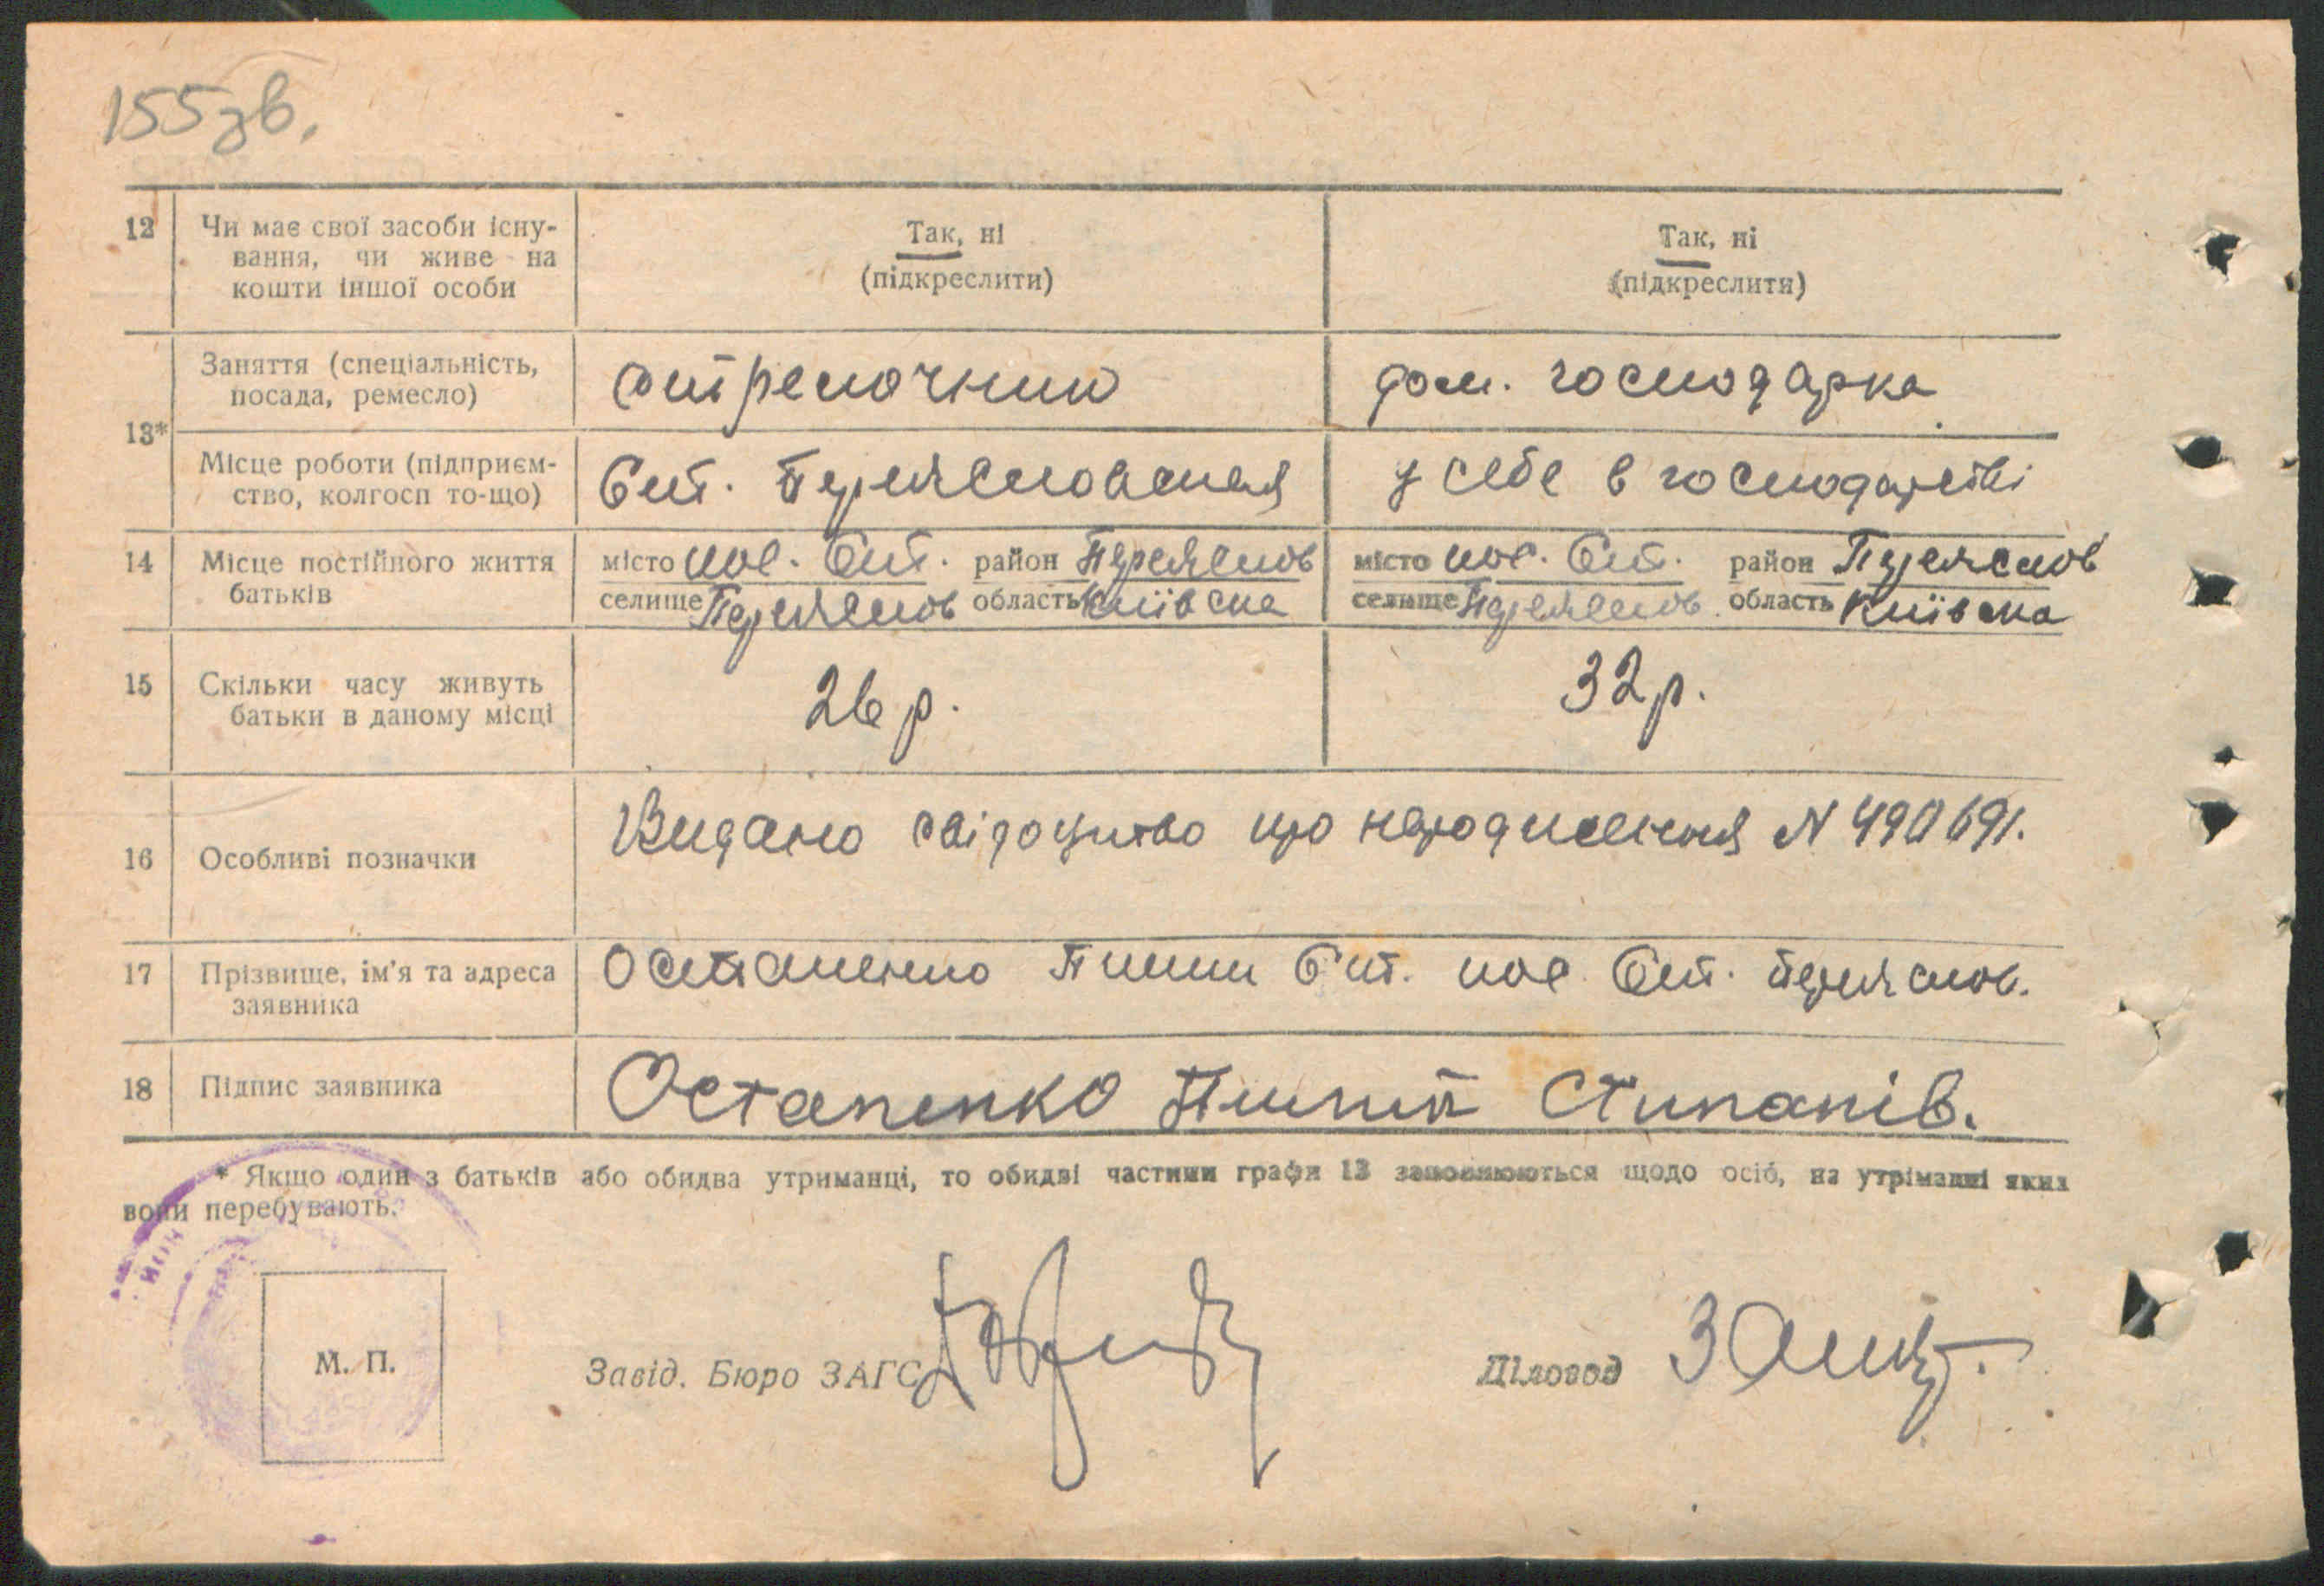 155зв.
12 Чи має свої засоби існу-
вання, чи живе на
кошти іншої особи
Так, ні
(підкреслити)
Так, ні
(підкреслити)
13*
Заняття (спеціальність,
посада, ремесло)
стрелочник
дом. господарка
Місце роботи (підприєм-
ство, колгосп то-що)
Ст. Переясловская
у себе в господарстві
14 Місце постійного життя
батьків
місто пос. Ст. район Переяслов
селище Переяслов область Київска
місто пос. Ст. район Переяслов
селище Переяслов область Київска
15 Скільки часу живуть
батьки в даному місці
26 р.
32 р.
16 Особливі позначки
Видано свідоцтво про народження N 490691.
17 Прізвище, ім'я та адреса
заявника
Остапенко Пилип Ст. пос Ст. Переяслов.
18 Підпис заявника
Остапенко Пилип Стипанів.
* Якщо один з батьків або обидва утриманці, то обидві частини графи 13 заповнюються щодо осіб, на утріманні яких
вони перебувають.
М. П.
Завід. Бюро ЗАГС
Діловод